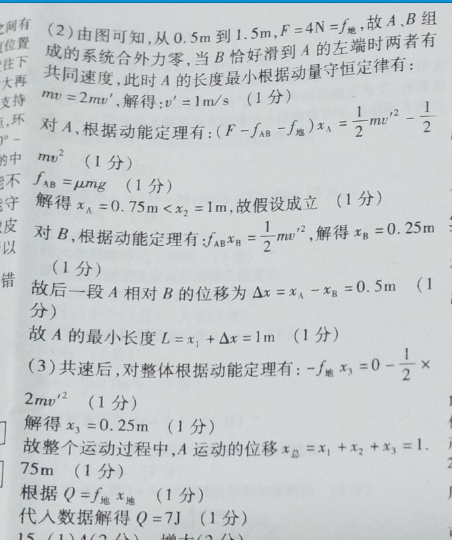 (2)由图可知,从0.5m到1.5m,F=4N=f地,故A、B组
成的系统合外力零,当B恰好滑到A的左端时两者有
共同速度,此时A的长度最小根据动量守恒定律有:
mv=2mv′,解得:v′=1m/s (1分)
对A,根据动能定理有:(F-fAB-f地)xA=1/2mv′²-1/2
mv² (1分)
fAB=μmg (1分)
解得xA=0.75m<x2=1m,故假设成立 (1分)
对B,根据动能定理有:fABxB=1/2mv′²,解得xB=0.25m
(1分)
故后一段A相对B的位移为Δx=xA-xB=0.5m (1
分)
故A的最小长度L=x1+Δx=1m (1分)
(3)共速后,对整体根据动能定理有:-f地x3=0-1/2×
2mv′² (1分)
解得x3=0.25m (1分)
故整个运动过程中,A运动的位移x总=x1+x2+x3=1.
75m (1分)
根据Q=f地x地 (1分)
代人数据解得Q=7J (1分)
间有
位置
往下
大再
支持
环
的中
能不
能守
皮
以
错